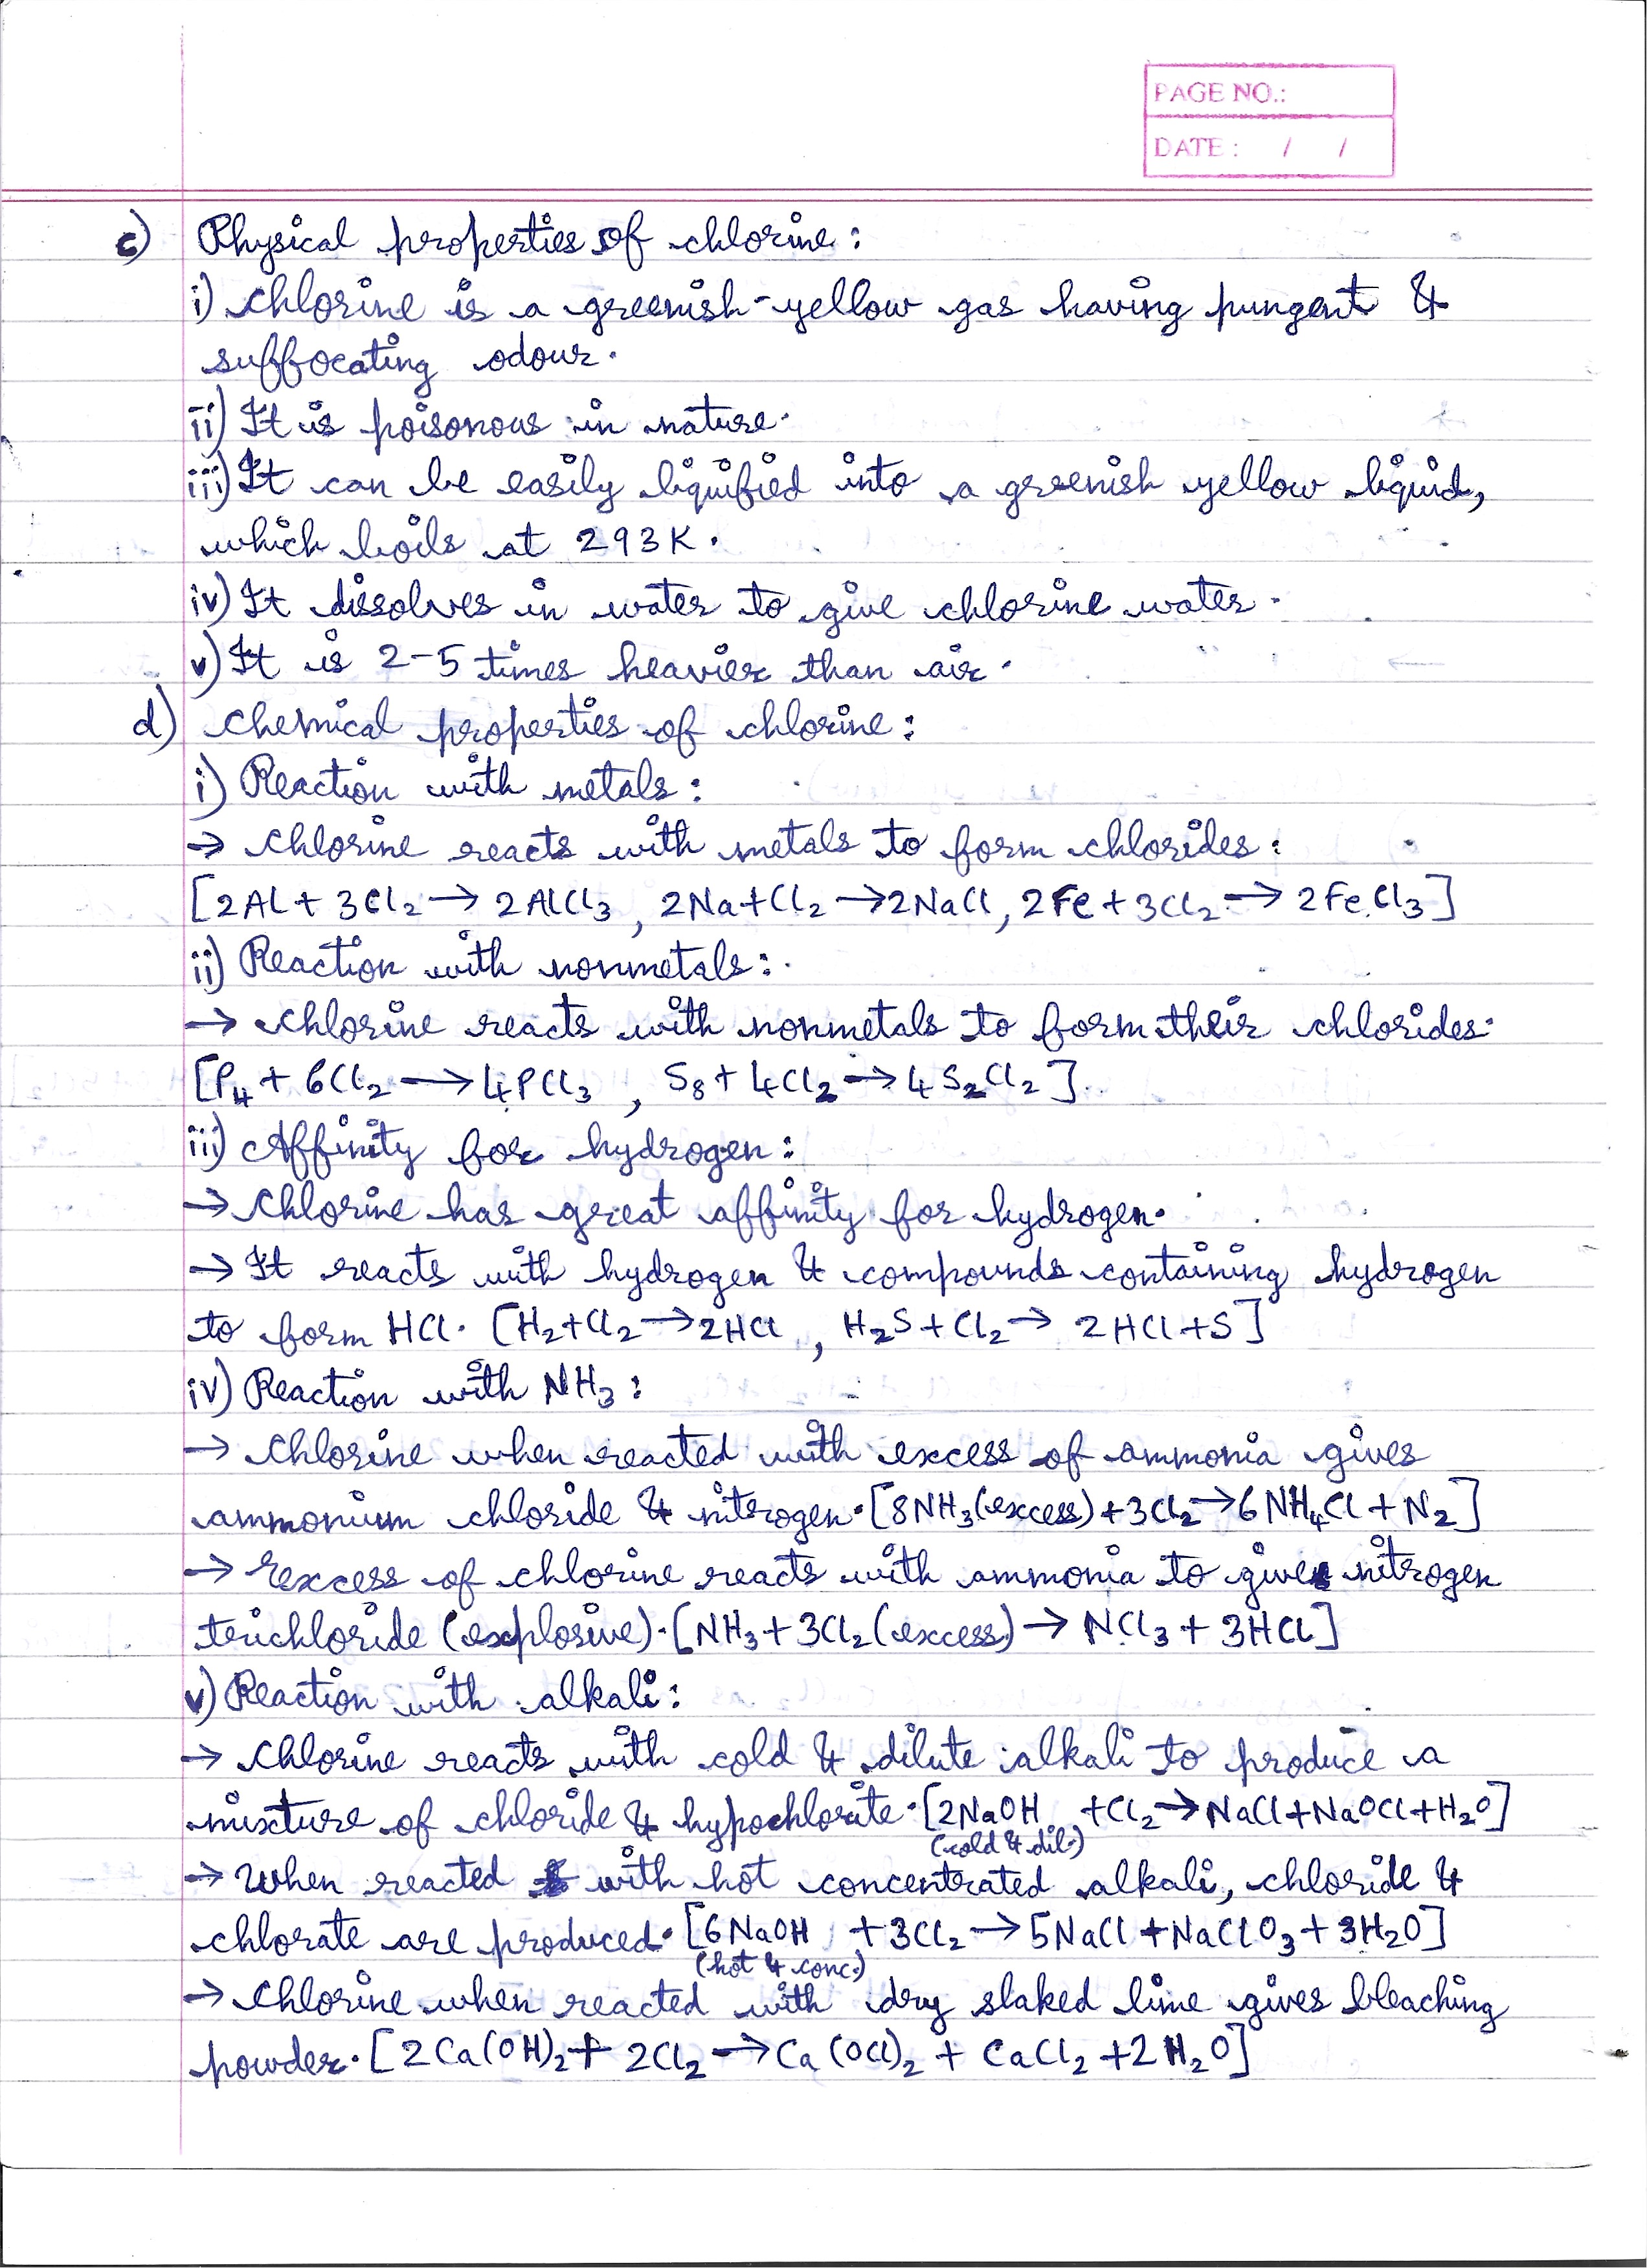 PAGE NO.:
DATE : / /
c) Physical properties of chlorine :
i) Chlorine is a greenish-yellow gas having pungent &
suffocating odour.
ii) It is poisonous in nature.
iii) It can be easily liquified into a greenish yellow liquid,
which boils at 293K.
iv) It dissolves in water to give chlorine water.
v) It is 2-5 times heavier than air.
d) Chemical properties of chlorine :
i) Reaction with metals :
→ Chlorine reacts with metals to form chlorides :
[2Al + 3Cl₂ → 2AlCl₃ , 2Na+Cl₂ → 2NaCl, 2Fe + 3Cl₂ → 2FeCl₃]
ii) Reaction with nonmetals :
→ Chlorine reacts with nonmetals to form their chlorides.
[P₄ + 6Cl₂ → 4PCl₃ , S₈ + 4Cl₂ → 4S₂Cl₂].
iii) Affinity for hydrogen :
→ Chlorine has great affinity for hydrogen.
→ It reacts with hydrogen & compounds containing hydrogen
to form HCl. [H₂+Cl₂ → 2HCl , H₂S + Cl₂ → 2HCl+S]
iv) Reaction with NH₃ :
→ Chlorine when reacted with excess of ammonia gives
ammonium chloride & nitrogen. [8NH₃(excess) + 3Cl₂ → 6NH₄Cl + N₂]
→ Excess of chlorine reacts with ammonia to give nitrogen
trichloride (explosive). [NH₃ + 3Cl₂ (excess) → NCl₃ + 3HCl]
v) Reaction with alkali :
→ Chlorine reacts with cold & dilute alkali to produce a
mixture of chloride & hypochlorite. [2NaOH +Cl₂ → NaCl+NaOCl+H₂O]
(cold & dil.)
→ When reacted with hot concentrated alkali, chloride &
chlorate are produced. [6NaOH + 3Cl₂ → 5NaCl + NaClO₃ + 3H₂O]
(hot & conc.)
→ Chlorine when reacted with dry slaked lime gives bleaching
powder. [2Ca(OH)₂ + 2Cl₂ → Ca(OCl)₂ + CaCl₂ + 2H₂O]